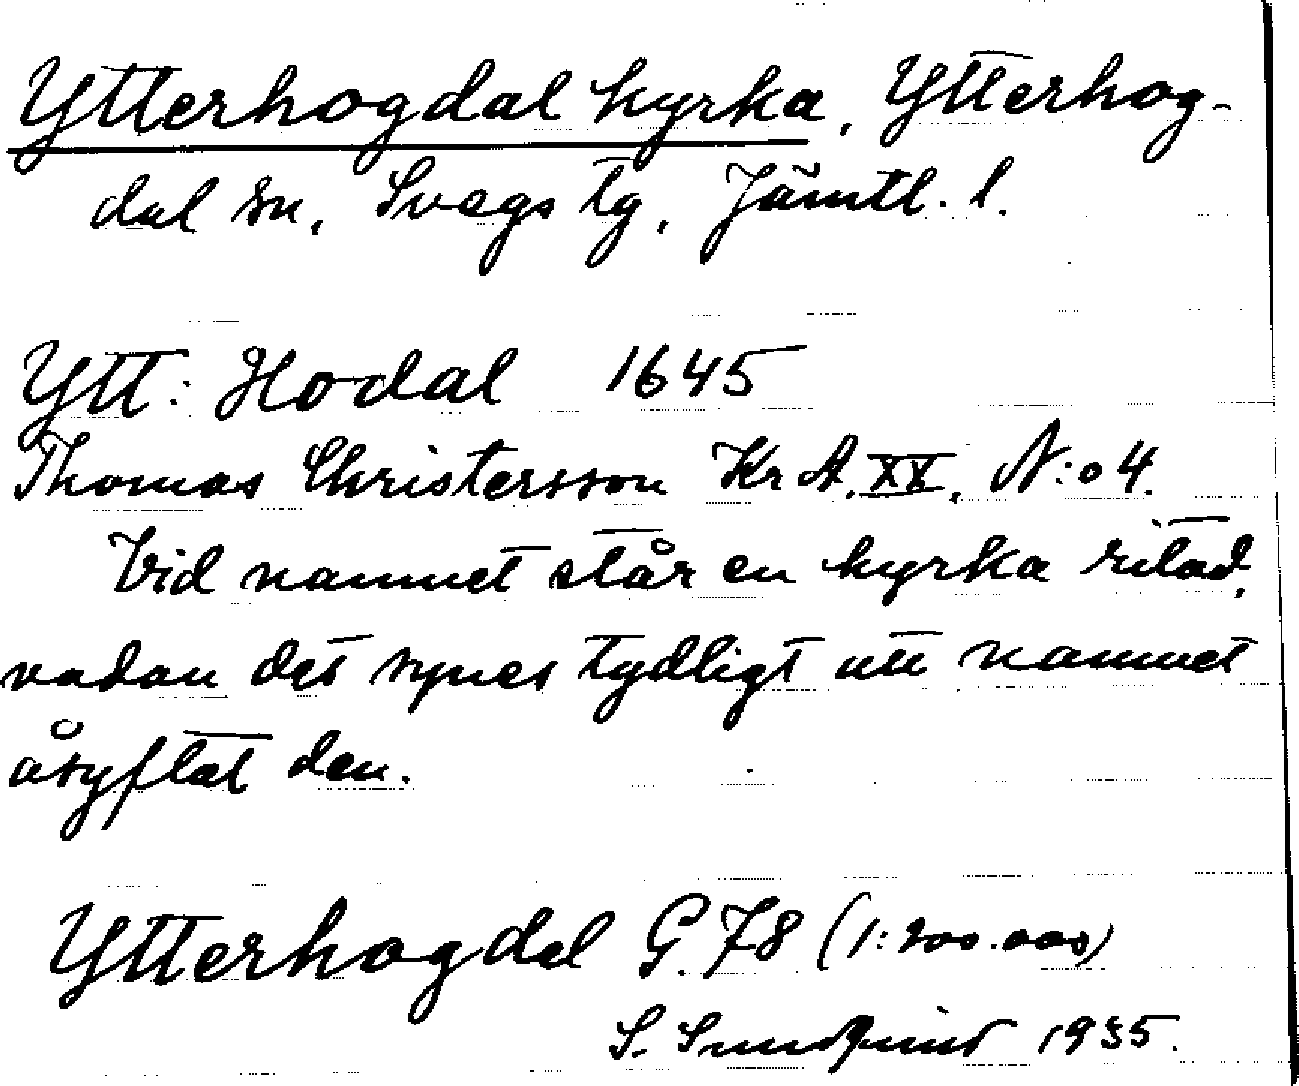 Ytterhogdal kyrka, Ytterhog-
dal sn, Svegs tg, Jämtl. l.
Ytt: Hodal 1645
Thomas Christersson Kr A. XX, N:o 4.
Vid namnet står en kyrka ritad,
vadan det synes tydligt att namnet
åsyftat den.
Ytterhogdal G. 78 (1:200.000)
S. Sundquist 1935.